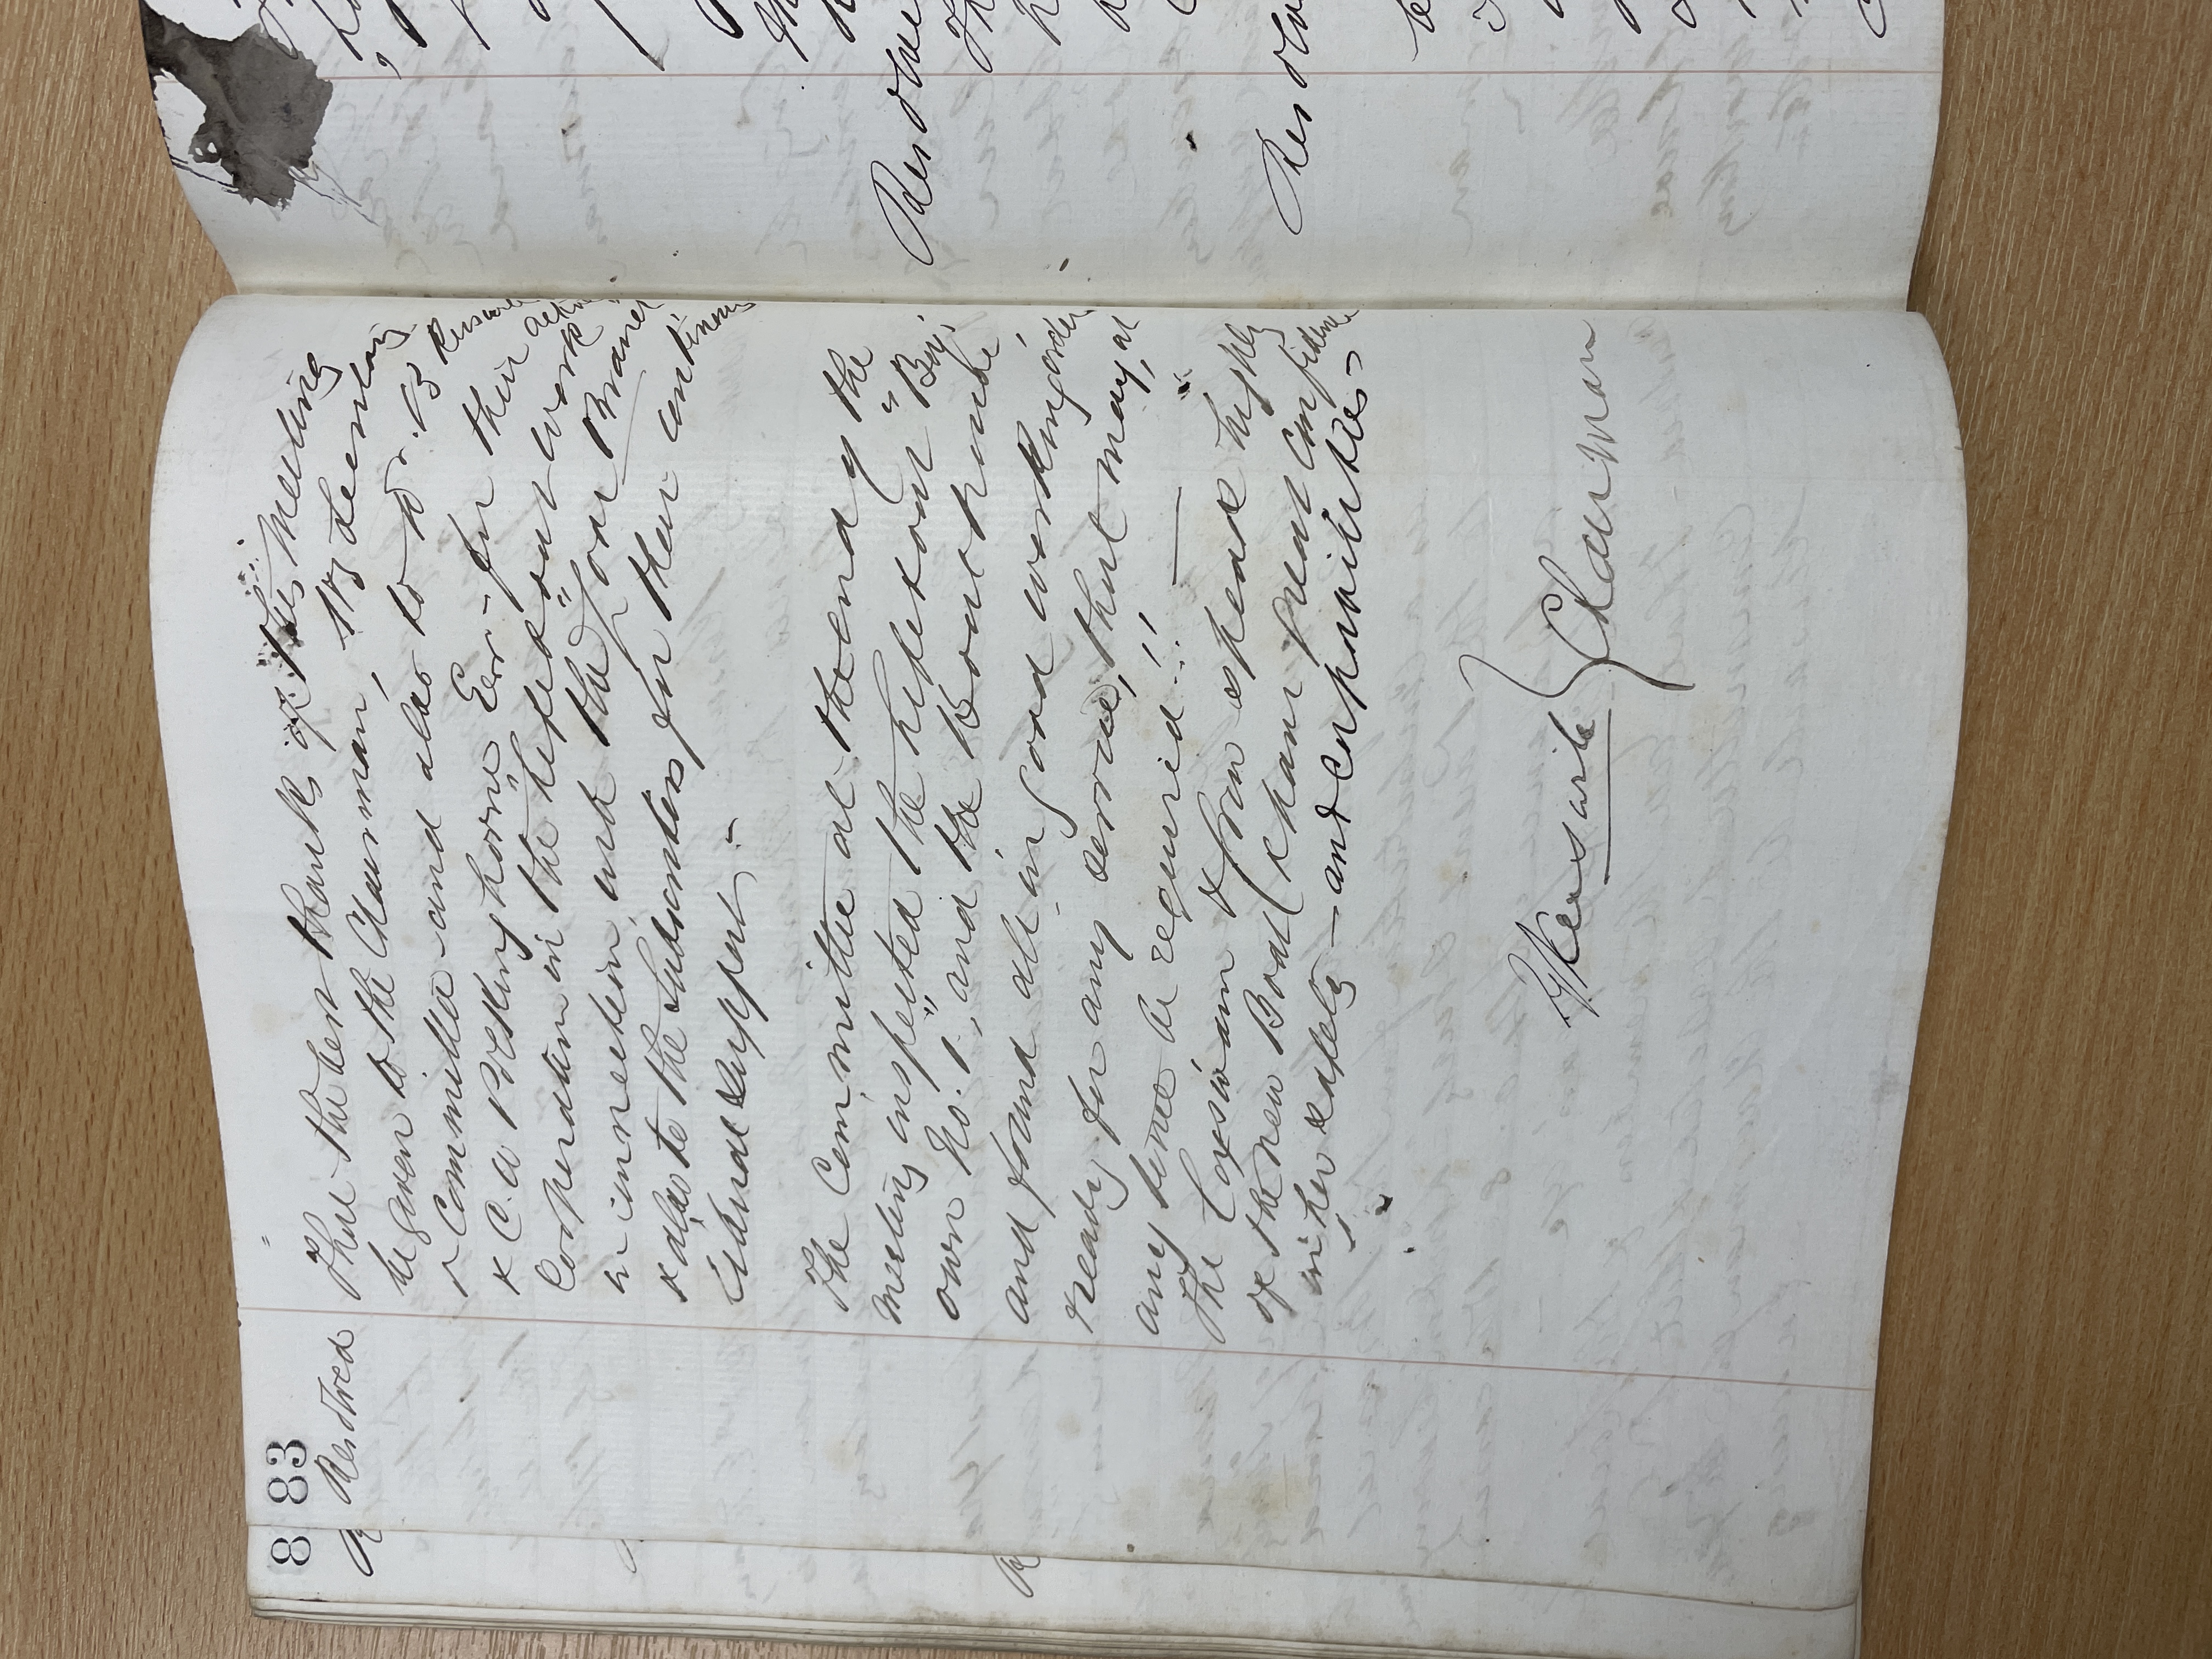 83
Resolved That the best thanks of this Meeting
be given to the Chairman, the Secretary
& Committee - and also to Dr. B Kerswill
& C. a Peskinghorne Esq - for their active
Cooperation in the lifeboat work
in connection with the Looe Branch
& also to the Subscribers for their contin-
-ued Support. -
The Committee at the end of the
meeting inspected the lifeboat "Boy's
own" No. 1, and the Boathouse
and found all in good working order
ready for any service, that may, at
any time be required!!
The Coxswain & Crew speak highly
of the new Boat (& have great confidence
in her safety - and capabilities -
Kerswill
Chairman
8
Resolve
Resolve